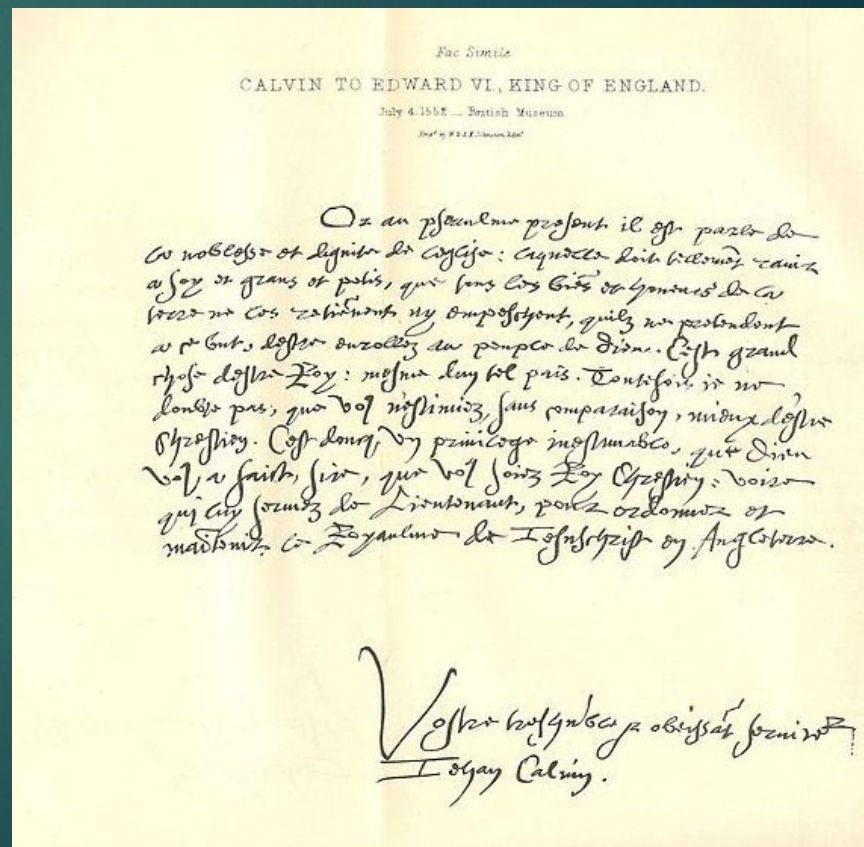 Fac Simile
CALVIN TO EDWARD VI., KING OF ENGLAND.
July 4. 1552 _ British Museum.
Or au pseaulme present il est parle de
la noblesse et dignite de leglise: laquelle doit tellemēt ravir
a soy et grans et petis, que tous les biēs et honeurs de la
terre ne les retiēnent ny empeschent, quilz ne pretendent
a ce but, destre enrollez au peuple de Dieu. Cest grand
chose destre Roy: mesme dun tel pais. Toutesfois ie ne
doubte pas, que vo9 nestimiez, sans comparaison, mieux destre
Chrestien. Cest doncq un privilege inestimable, que Dieu
vo9 a faict, Sire, que vo9 soiez Roy Chrestien: voire
qui luy servez de Lieutenant, pour ordonner et
maītenir le Royaulme de Iesuschrist en Angleterre.
Vostre treshūble & obeissāt serviter
Iehan Calvin.